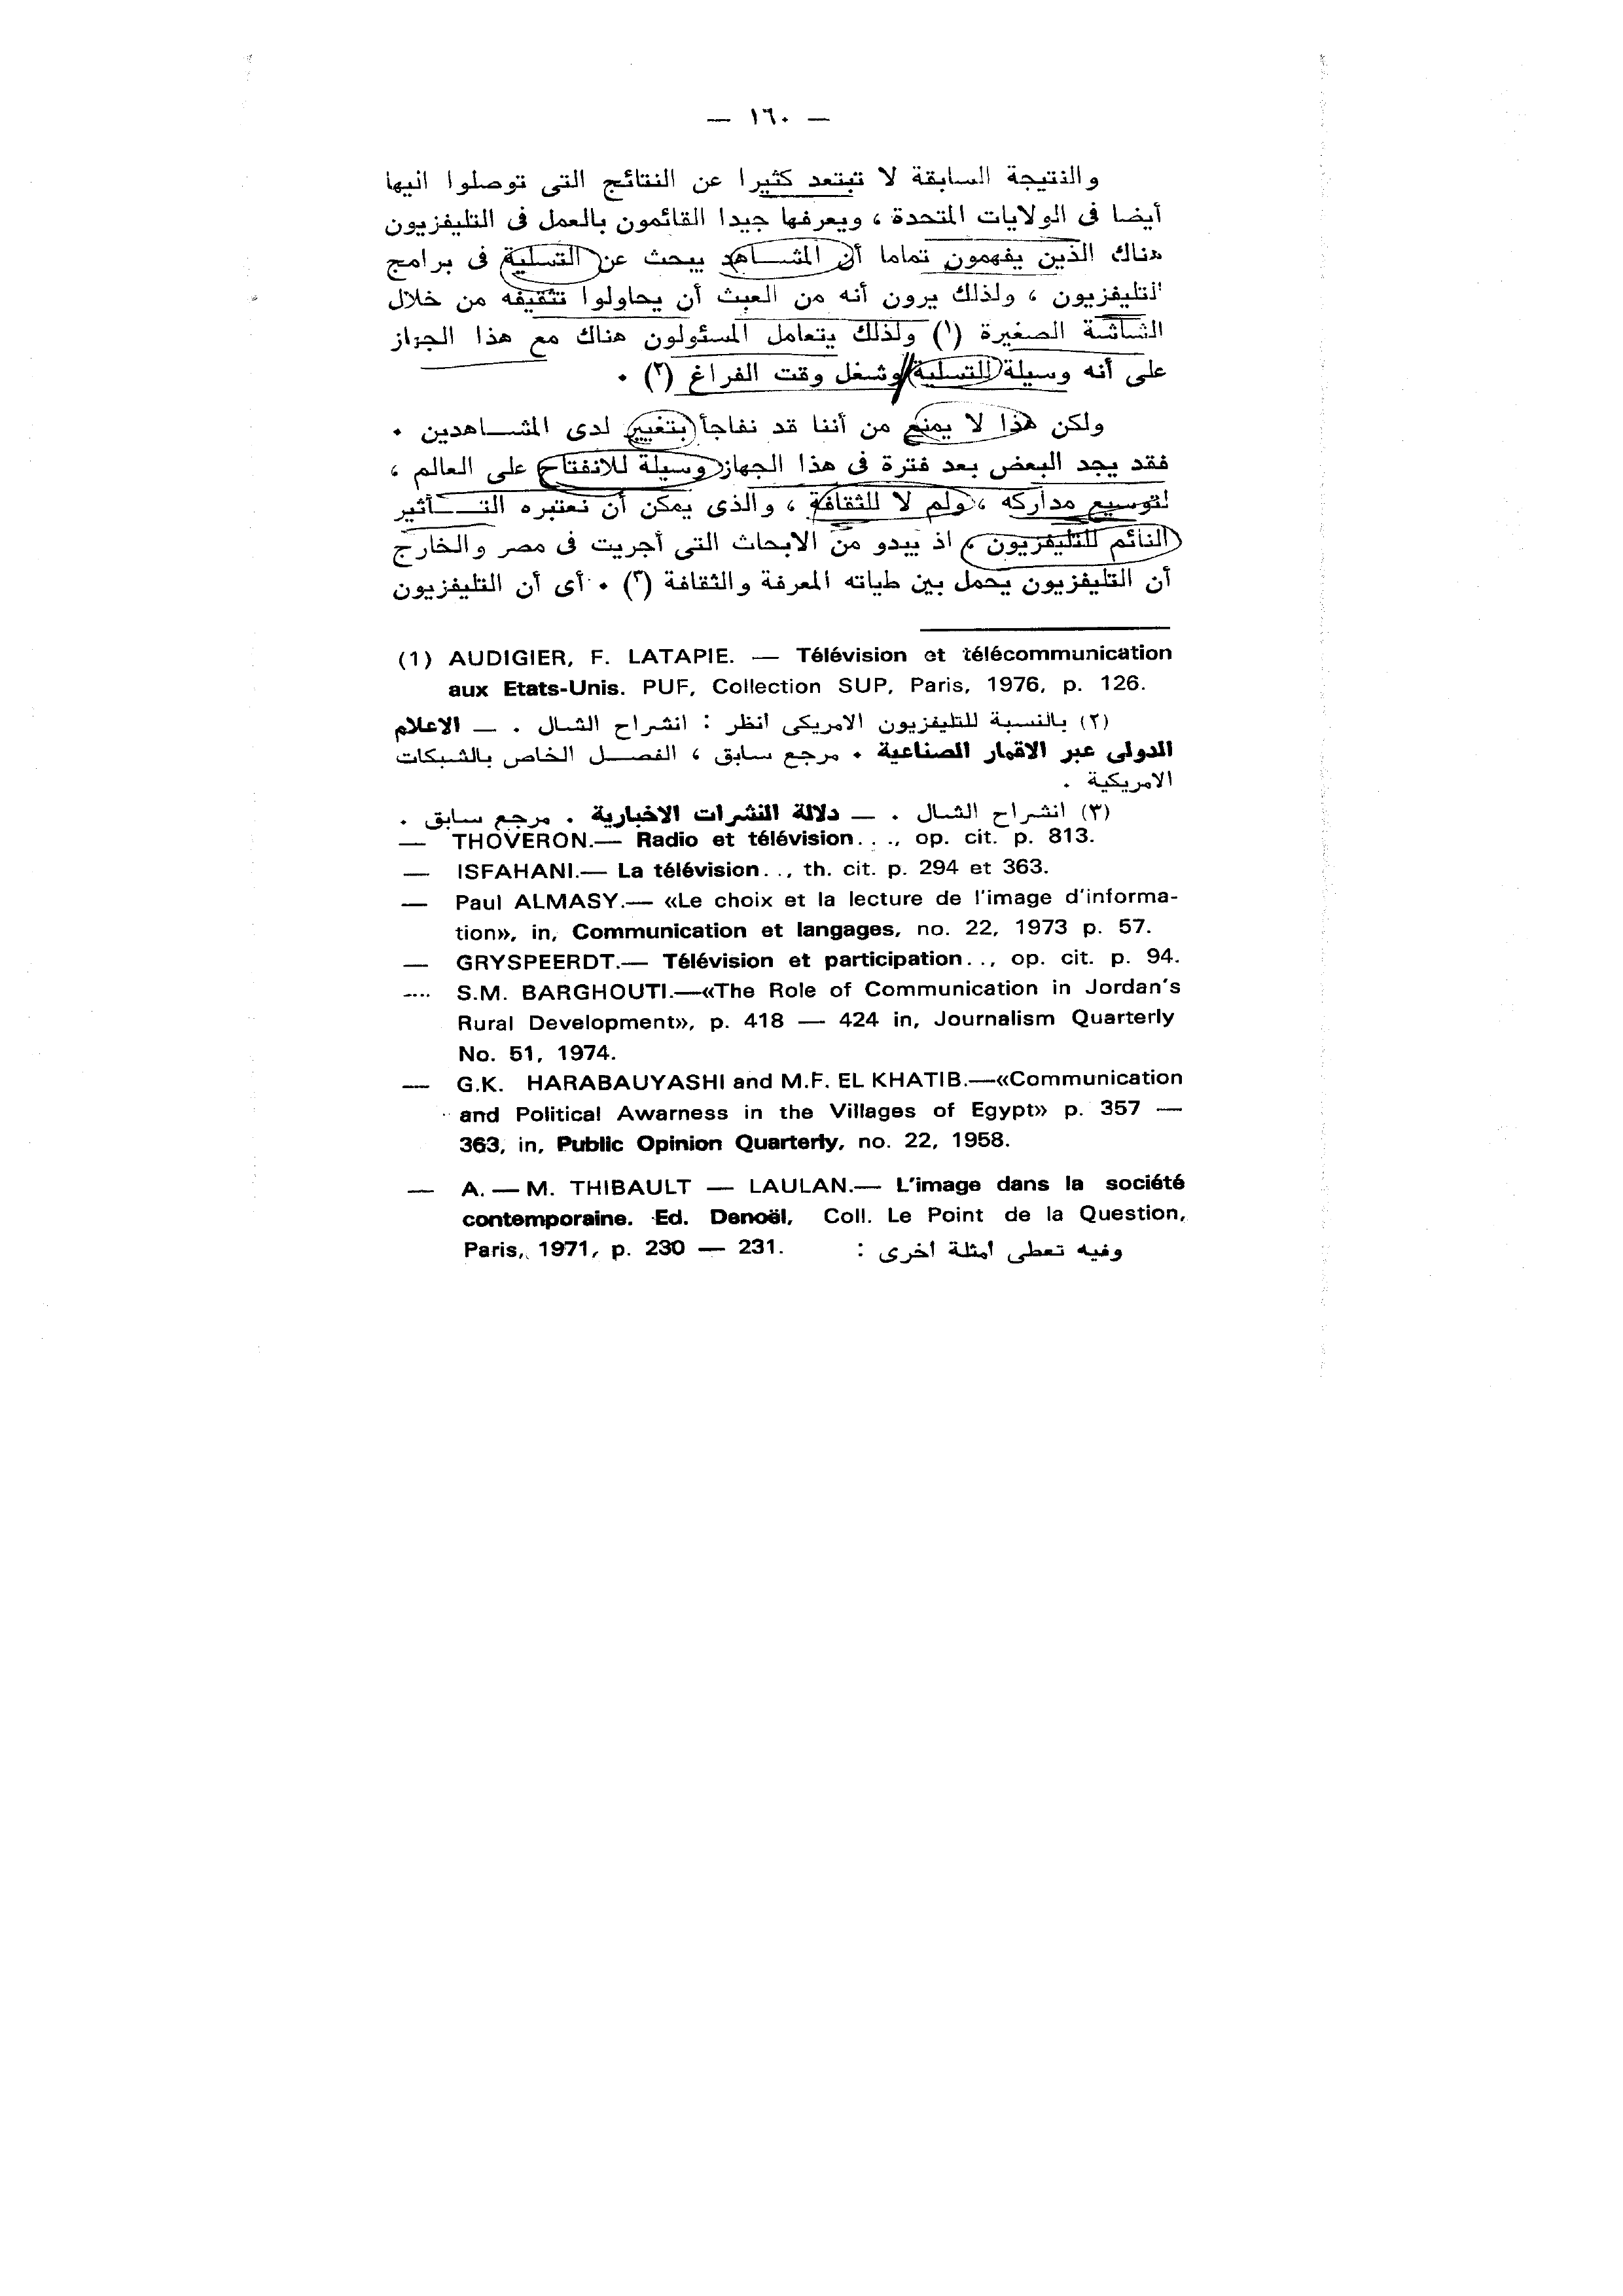 — ١٦٠ —
والنتيجة السابقة لا تبتعد كثيرا عن النتائج التى توصلوا اليها
أيضا فى الولايات المتحدة ، ويعرفها جيدا القائمون بالعمل فى التليفزيون
هناك الذين يفهمون تماما أن المشــاهد يبحث عن التسلية فى برامج
التليفزيون ، ولذلك يرون أنه من العبث أن يحاولوا تثقيفه من خلال
الشاشة الصغيرة (١) ولذلك يتعامل المسئولون هناك مع هذا الجهاز
على أنه وسيلة للتسلية وشغل وقت الفراغ (٢) .
ولكن هذا لا يمنع من أننا قد نفاجأ بتغيير لدى المشــاهدين .
فقد يجد البعض بعد فترة فى هذا الجهاز وسيلة للانفتاح على العالم ،
لتوسيع مداركه ، ولم لا للثقافة ، والذى يمكن أن نعتبره التــأثير
النائم للتليفزيون ، اذ يبدو من الابحاث التى أجريت فى مصر والخارج
أن التليفزيون يحمل بين طياته المعرفة والثقافة (٣) . أى أن التليفزيون
(1) AUDIGIER, F. LATAPIE. — Télévision et télécommunication
aux Etats-Unis. PUF, Collection SUP, Paris, 1976, p. 126.
(٢) بالنسبة للتليفزيون الامريكى انظر : انشراح الشال . — الاعلام
الدولى عبر الاقمار الصناعية . مرجع سابق ، الفصــل الخاص بالشبكات
الامريكية .
(٣) انشراح الشال . — دلالة النشرات الاخبارية . مرجع سابق .
— THOVERON.— Radio et télévision. . ., op. cit. p. 813.
— ISFAHANI.— La télévision. ., th. cit. p. 294 et 363.
— Paul ALMASY.— «Le choix et la lecture de l'image d'informa-
tion», in, Communication et langages, no. 22, 1973 p. 57.
— GRYSPEERDT.— Télévision et participation. ., op. cit. p. 94.
— S.M. BARGHOUTI.—«The Role of Communication in Jordan's
Rural Development», p. 418 — 424 in, Journalism Quarterly
No. 51, 1974.
— G.K. HARABAUYASHI and M.F. EL KHATIB.—«Communication
and Political Awarness in the Villages of Egypt» p. 357 —
363, in, Public Opinion Quarterly, no. 22, 1958.
— A. — M. THIBAULT — LAULAN.— L'image dans la société
contemporaine. Ed. Denoël, Coll. Le Point de la Question,
Paris, 1971, p. 230 — 231. وفيه تعطى امثلة اخرى :